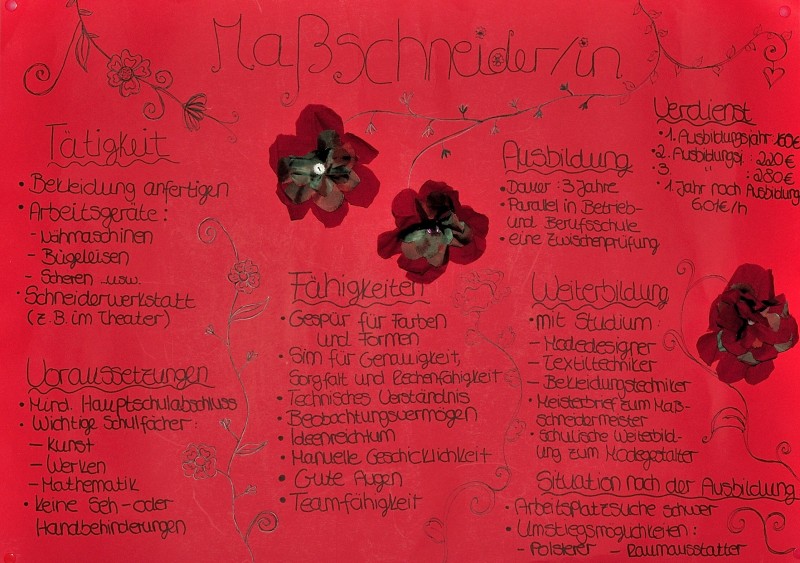 Maßschneider/in
Tätigkeit
• Bekleidung anfertigen
• Arbeitsgeräte:
- Nähmaschinen
- Bügeleisen
- Scheren usw.
• Schneiderwerkstatt
(z.B. im Theater)
Voraussetzungen
• Mind. Hauptschulabschluss
• Wichtige Schulfächer:
- Kunst
- Werken
- Mathematik
• Keine Seh- oder
Handbehinderungen
Fähigkeiten
• Gespür für Farben
und Formen
• Sinn für Genauigkeit,
Sorgfalt und Rechenfähigkeit
• Technisches Verständnis
• Beobachtungsvermögen
• Ideenreichtum
• Manuelle Geschicklichkeit
• Gute Augen
• Teamfähigkeit
Ausbildung
• Dauer: 3 Jahre
• Parallel in Betrieb-
und Berufsschule
• eine Zwischenprüfung
Verdienst
• 1. Ausbildungsjahr
• 2. Ausbildungsj.: 220€
• 3. " : 280€
• 1. Jahr nach Ausbildung
6,01€/h
Weiterbildung
• mit Studium:
- Modedesigner
- Textiltechniker
- Bekleidungstechniker
• Meisterbrief zum Maß-
schneidermeister
• schulische Weiterbild-
ung zum Modegestalter
Situation nach der Ausbildung
• Arbeitsplatzsuche schwer
• Umstiegsmöglichkeiten:
- Polsterer - Raumausstatter